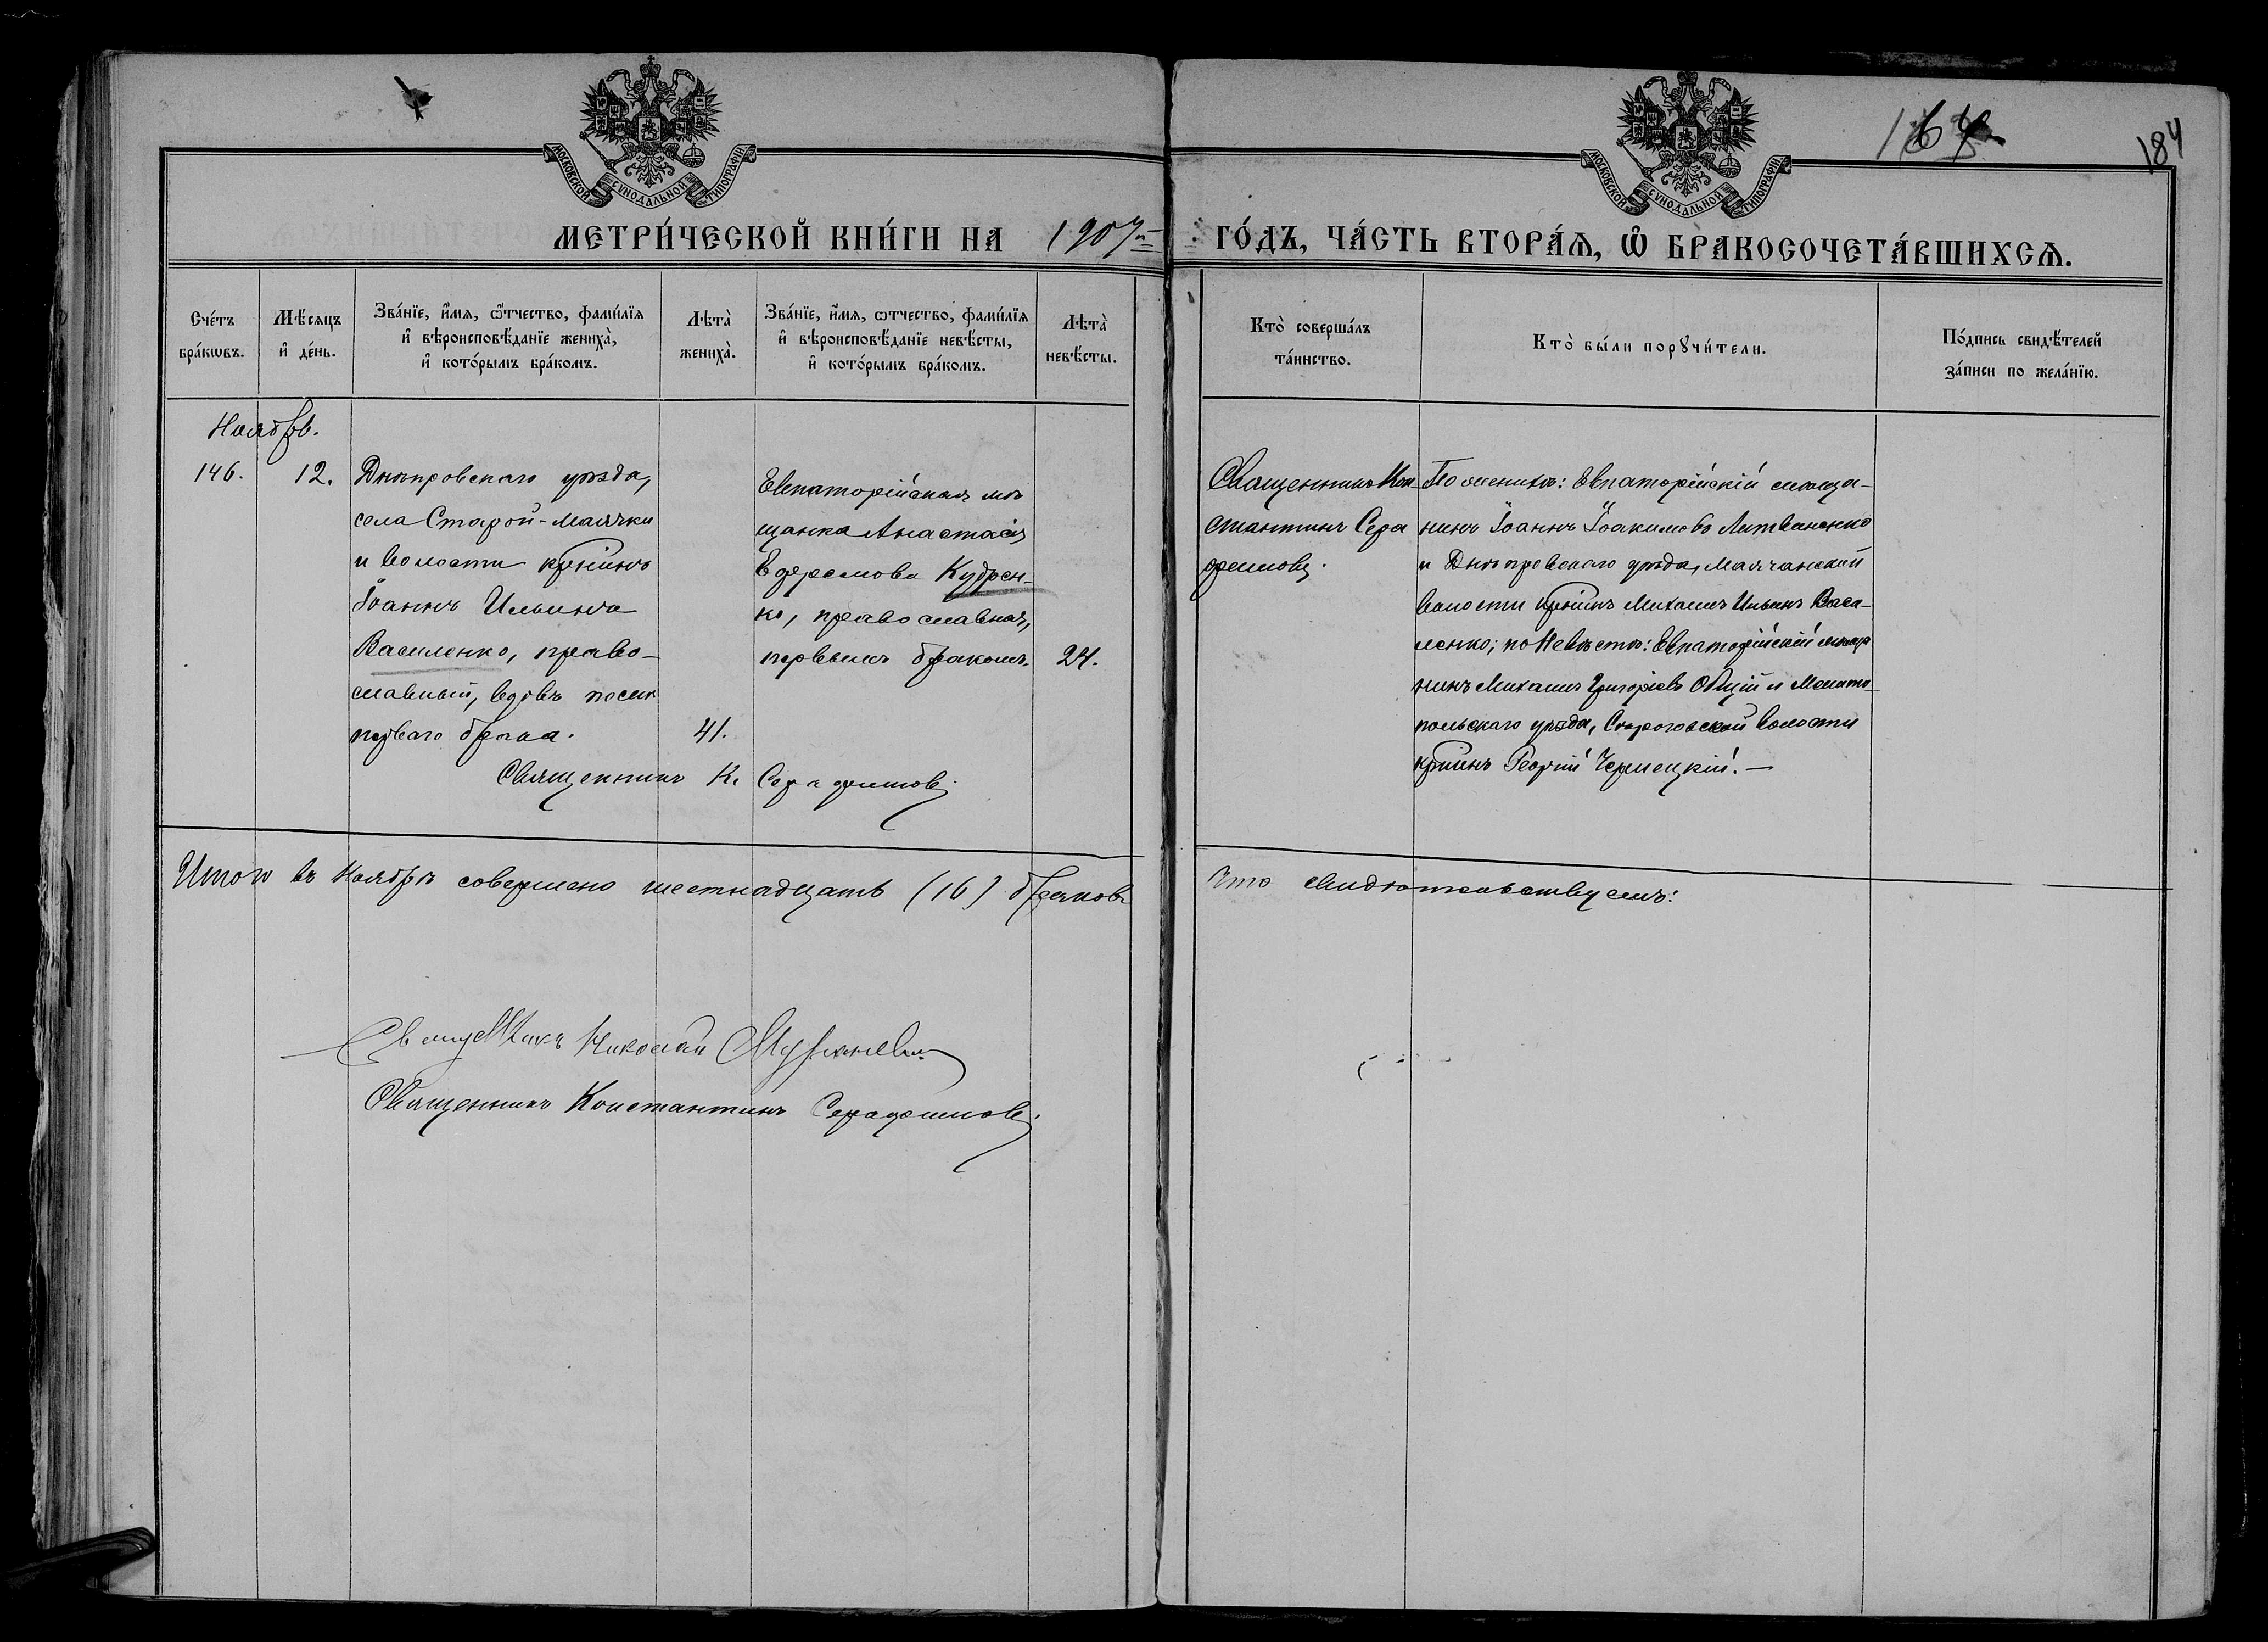 МОСКОВСКОЙ СѴНОДАЛЬНОЙ ТИПОГРАФІИ
МОСКОВСКОЙ СѴНОДАЛЬНОЙ ТИПОГРАФІИ
184
МЕТРИ́ЧЕСКОЙ КНИ́ГИ НА 1907 ГО́ДЪ, ЧА́СТЬ ВТОРА́Ѧ, Ѡ БРАКОСОЧЕТА́ВШИХСѦ.
Сче́тъ
бра́кωвъ.
Мѣ́сяцъ
и҆ де́нь.
Зва́нїе, и҆́мя, ѻ҆́тчество, фами́лїя
и҆ вѣроисповѣ́данїе жениха̀,
и҆ кото́рымъ бра́комъ.
Лѣта̀
жениха̀.
Зва́нїе, и҆́мя, ѻ҆́тчество, фами́лїя
и҆ вѣроисповѣ́данїе невѣ́сты,
и҆ кото́рымъ бра́комъ.
Лѣта̀
невѣ́сты.
Кто̀ соверша́лъ
та́инство.
Кто̀ бы́ли порꙋчи́тели.
По́дпись свидѣ́телей
за́писи по жела́нїю.
Ноябрь.
146.
12.
Днѣпровскаго уѣзда,
села Старой-Маячки
и волости кр̃нинъ
Іоаннъ Ильинъ
Василенко, право-
славный, вдовъ послѣ
перваго брака.
41.
Евпаторійская мѣ
щанка Анастасія
Ефремова Кудрен-
ко, православная,
первымъ бракомъ.
24.
Священникъ К. Серафимовъ.
Священникъ Кон
стантинъ Сера
фимовъ.
По женихѣ: Евпаторійскій мѣща-
нинъ Іоаннъ Іоакимовъ Литвиненко
и Днѣпровскаго уѣзда, Маячкинской
волости кр̃нинъ Михаилъ Ильинъ Васи-
ленко; по невѣстѣ: Евпаторійскій мѣща
нинъ Михаилъ Григоріевъ и Мелито-
польскаго уѣзда, волости
кр̃нинъ Георгій Чернецкій.—
Итого въ Ноябрѣ совершено шестнадцать (16) браковъ
Что свидѣтельствуемъ:
Священникъ Николай
Священникъ Константинъ Серафимовъ.